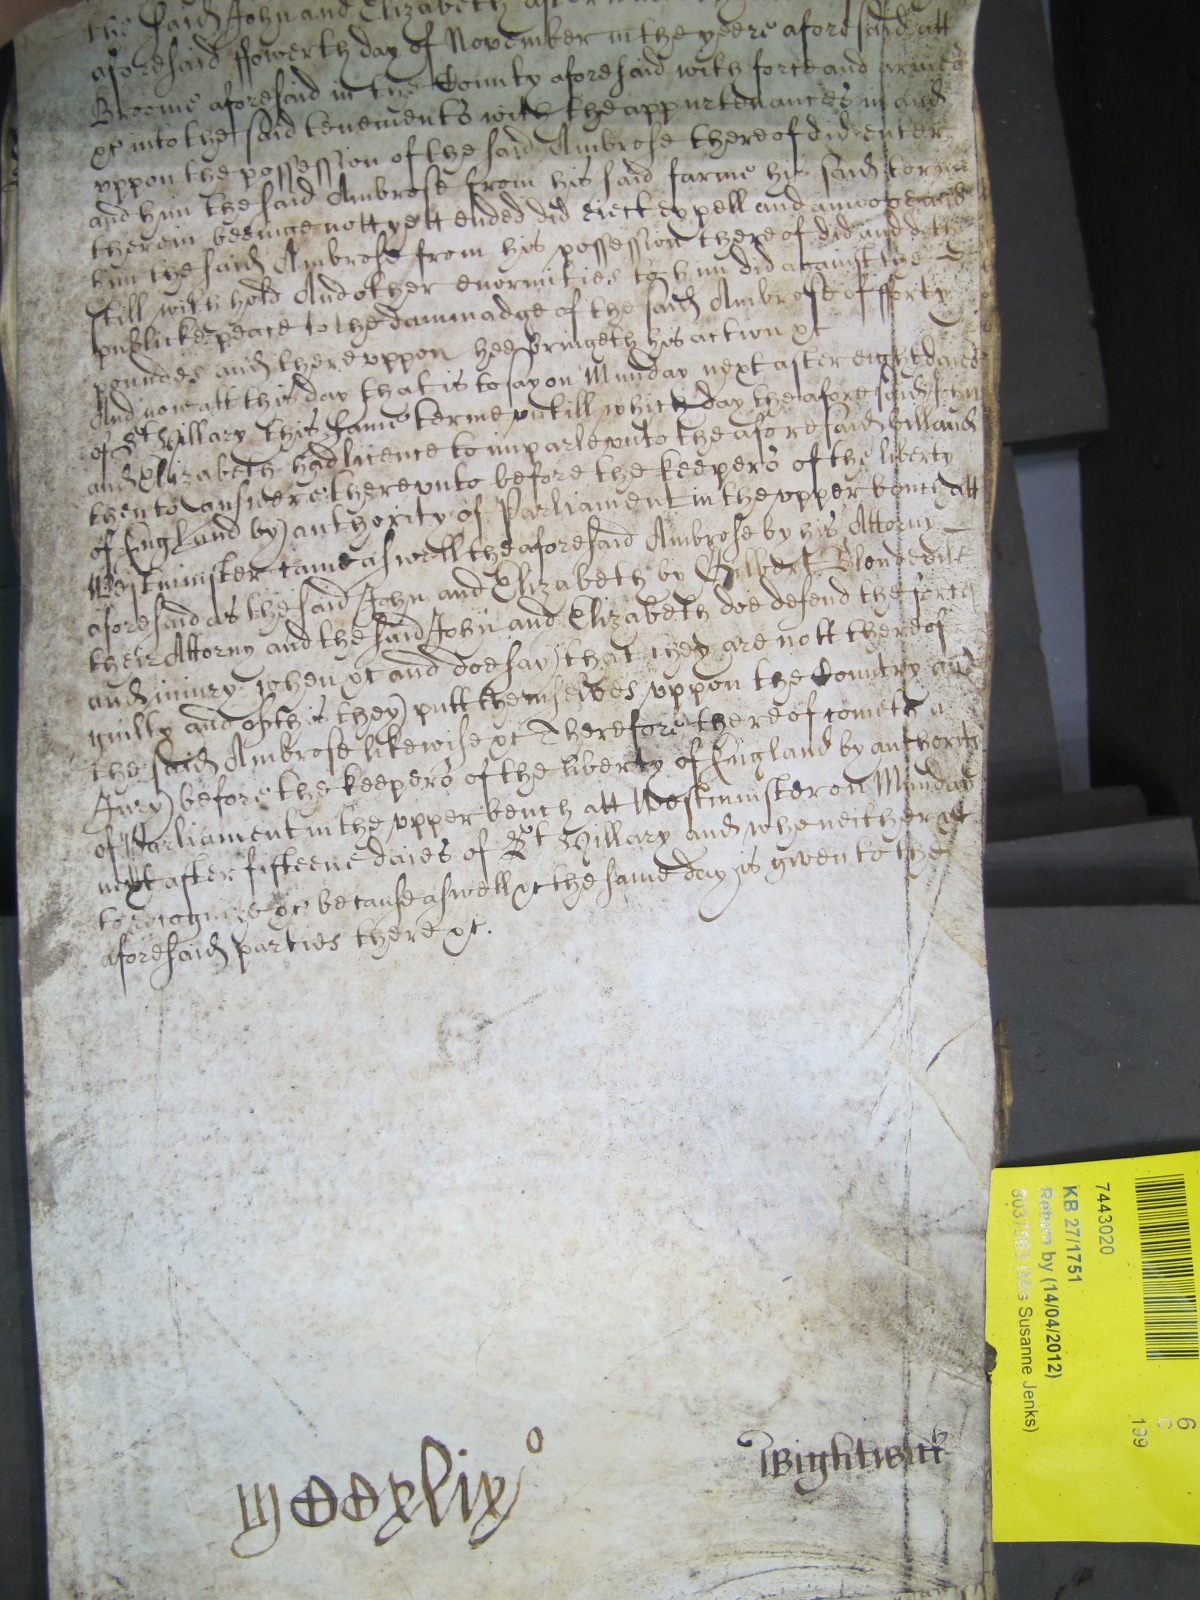 the said John and Elizabeth
aforesaid ffowerth day of November in the yeere aforesaid att
Broome aforesaid in the County aforesaid with force and armes
&c into the said tenements with the appurtenances in and
uppon the possession of the said Ambrose thereof did enter
and him the said Ambrose from his said farme his said terme
therein beeinge nott yett ended did eiect expell and amoove and
him the said Ambrose from his possession thereof did and doth
still with hold And other enormities to him did against the
publicke peace to the dammadge of the said Ambrose of fforty
poundes and thereuppon hee bringeth his action &c
And now att this day that is to say on Munday next after eight daies
of St Hillary this same terme untill which day the aforesaid John
and Elizabeth had licence to imparle unto the aforesaid bill and
then to answere thereunto before the keepers of the liberty
of England by authority of Parliament in the upper bench att
Westminister came aswell the aforesaid Ambrose by his Attorny
aforesaid as the said John and Elizabeth by Gilbert
their Attorny and the said John and Elizabeth doe defend the force
and iniury when &c and doe say that they are nott thereof
guilty and of this they putt themselves uppon the Country and
the said Ambrose likewise &c Therefore thereof cometh a
Jury before the keepers of the liberty of England by authority
of Parliament in the upper bench att Westminister on Munday
next after fifteene daies of St Hillary and who neither &c
to recognize &c because aswell &c the same day is given to the
aforesaid parties there &c.
Wightwick
7443020
KB 27/1751
Return by (14/04/2012)
Susanne Jenks)
6
C
199